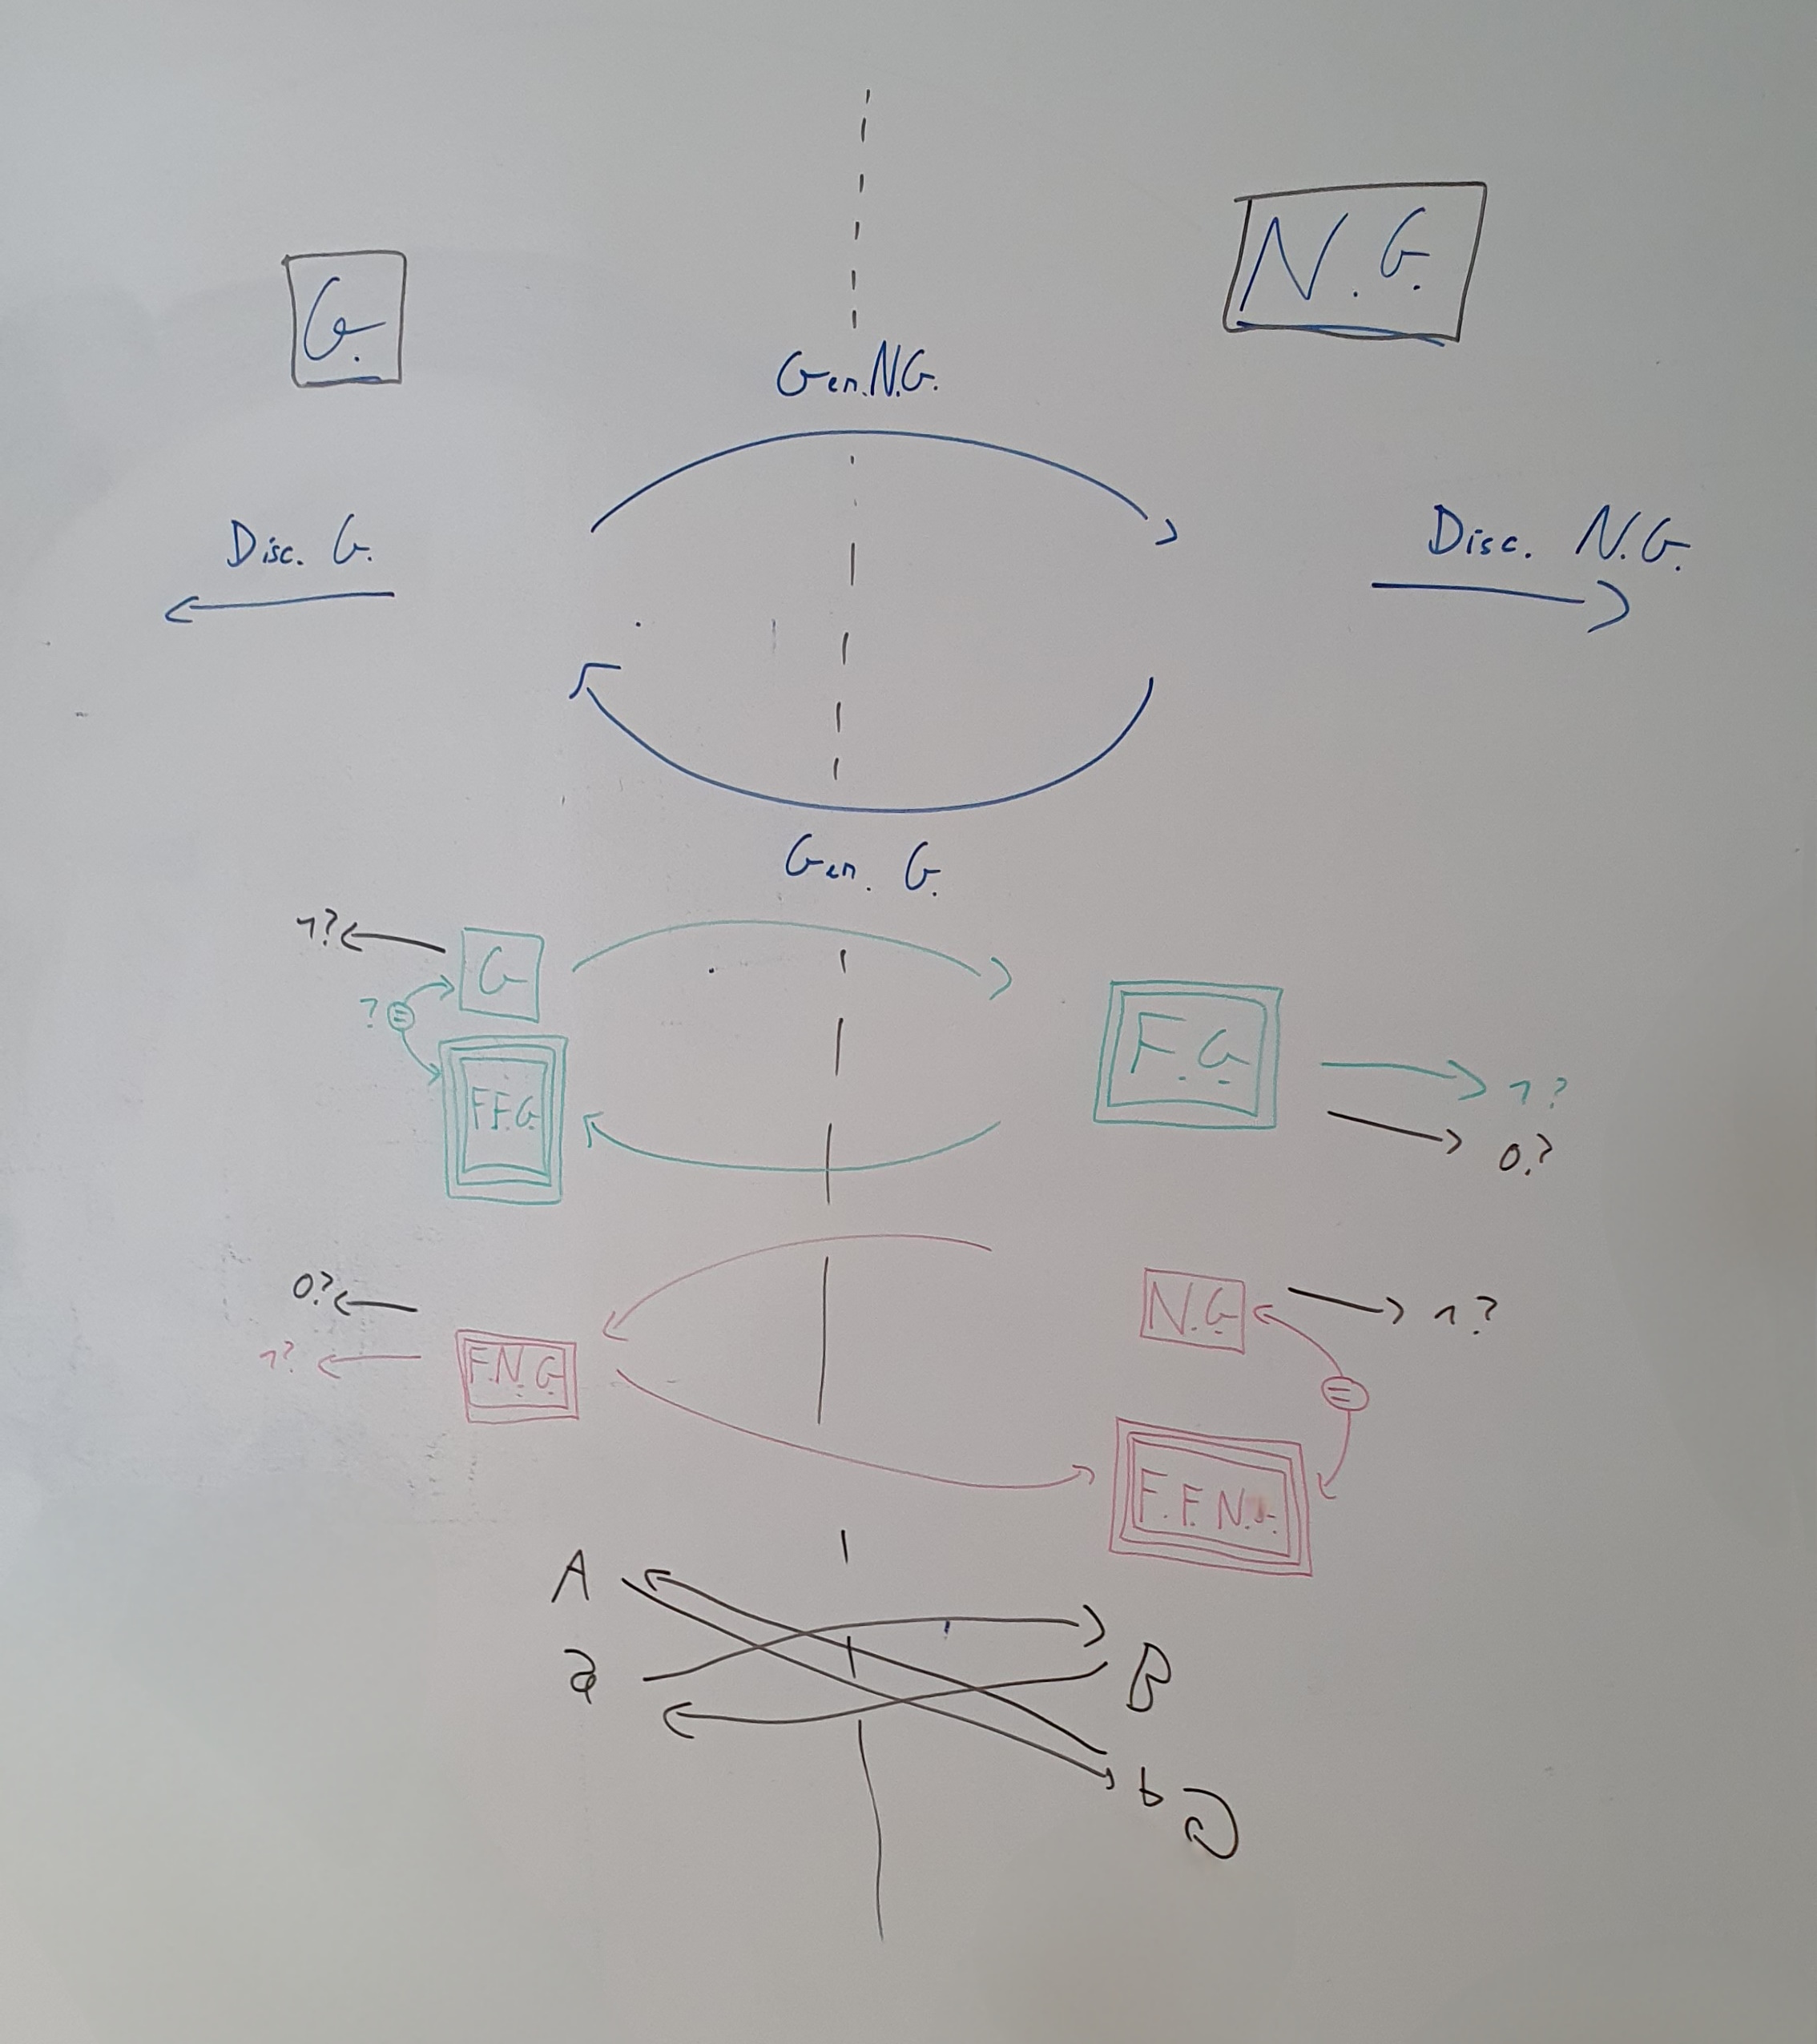 G.
N.G.
Gen.N.G.
Disc. G.
Disc. N.G.
Gen. G.
1?
G
?
=
F.F.G.
F.G
1?
0?
0?
1?
F.N.G.
N.G
1?
=
F.F.N.
A
a
B
b